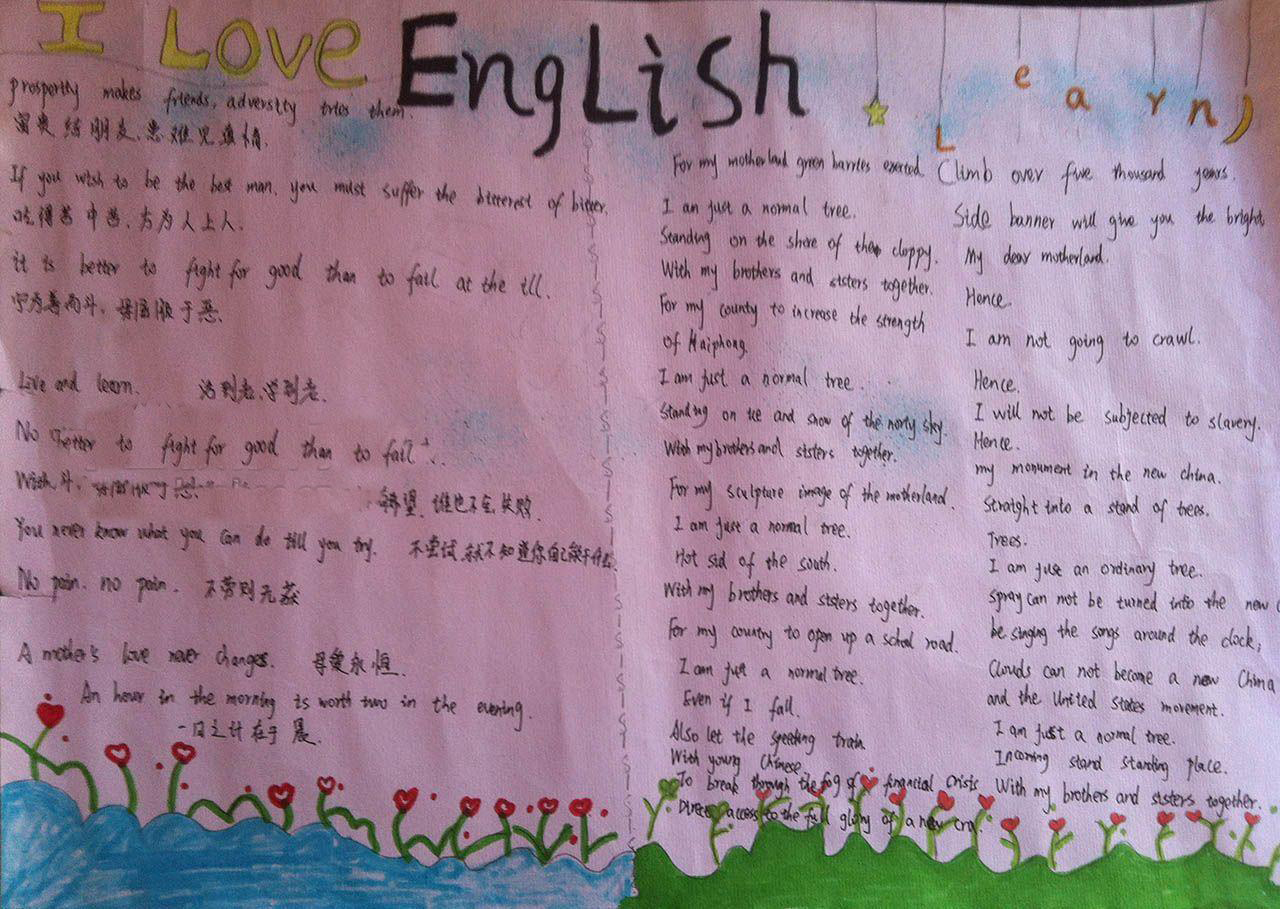 I Love English
Learn
prosperity makes friends, adversity tries them.
富贵结朋友,患难见真情.
If you wish to be the best man, you must suffer the bitterest of bitter.
吃得苦中苦,方为人上人.
it is better to fight for good than to fail at the ill.
宁为善而斗,毋屈服于恶.
Live and learn. 活到老,学到老.
No better to fight for good than to fail
With 斗,
希望,谁也不会失败.
You never know what you can do till you try. 不尝试,就不知道你自己能干什么.
No pain. no pain. 不劳则无获
A mother's love never changes. 母爱永恒.
An hour in the morning is worth two in the evening.
一日之计在于晨.
For my motherland green barries exected.
I an just a normal tree.
Standing on the shore of the cloppy.
With my brothers and ststers together.
For my county to increase the strength
of Haiphong
I am just a normal tree.
Standing on ice and snow of the norty sky.
With my brothers and ststers together.
For my sculpture image of the motherland.
I am just a normal tree.
Hot sid of the south.
With my brothers and ststers together.
For my country to open up a school road.
I am just a normal tree.
Even if I fall.
Also let the speeting train
With young Chinese
To break through the fog of financial Crisis
access to the full glory of a new
Climb over five thousand years.
Side banner will give you the bright
My dear motherland.
Hence.
I am not going to crawl.
Hence.
I will not be subjected to slavery.
Hence.
my monument in the new china.
Straight into a stand of trees.
Trees.
I am just an ordinary tree.
spray can not be turned into the new
be singing the songs around the clock,
Clouds can not become a new China
and the United States movement.
I am just a normal tree.
Incoming stand standing place.
With my brothers and ststers together.